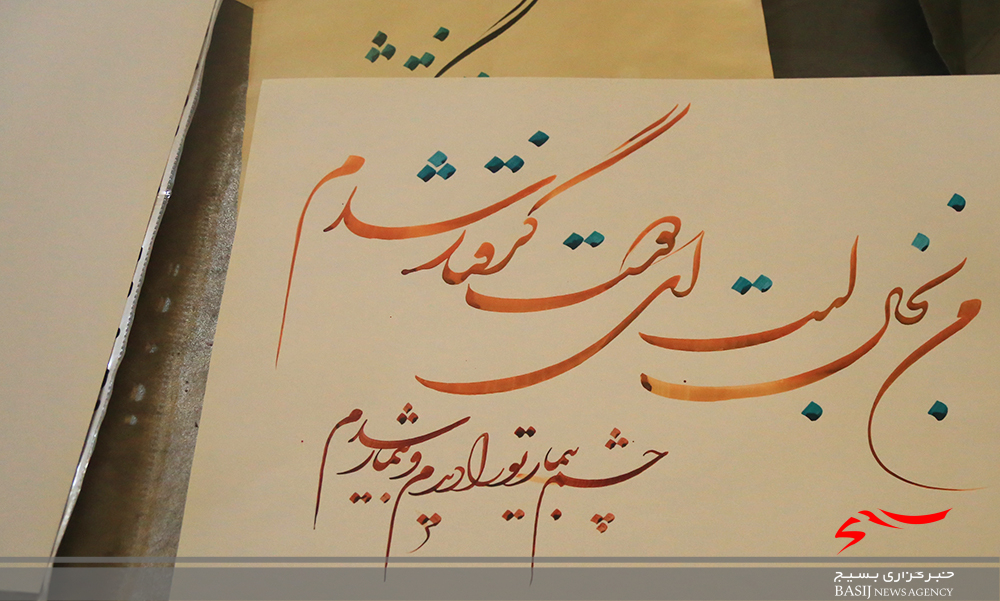 من بخال لبت ای دوست گرفتار شدم
چشم بیمار تو را دیدم و بیمار شدم
خبرگزاری بسیج
BASIJ NEWS AGENCY